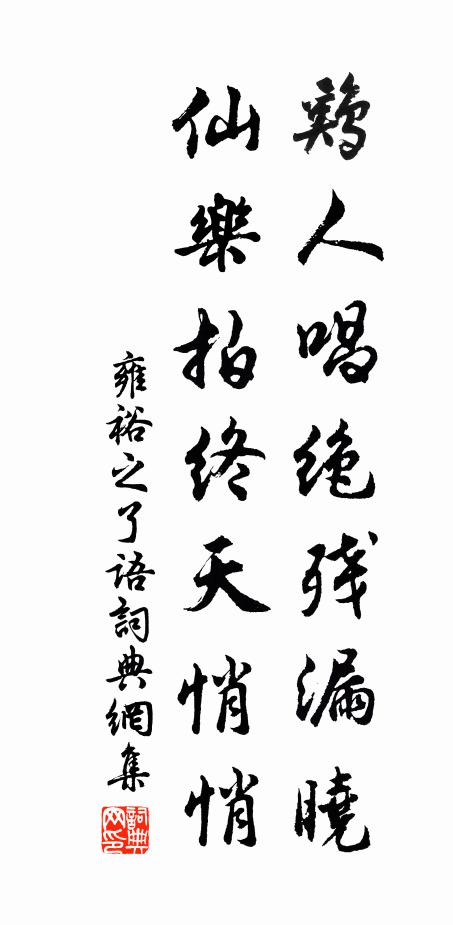 鷄人唱绝残漏曉
仙樂拍终天悄悄
雍裕之了语詞典網集
詞典网印